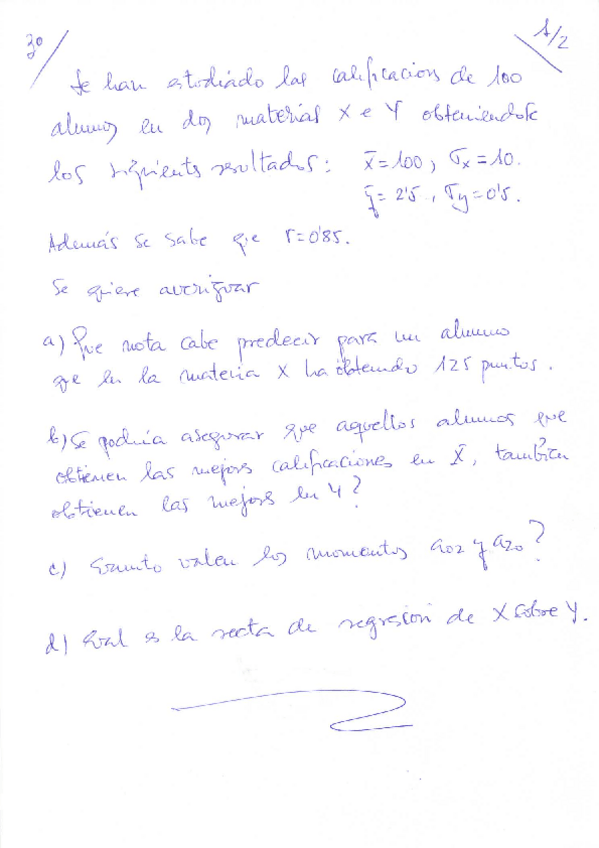 3º
1/2
Se han estudiado las calificacion de 100
alumnos en dos materias X e Y obteniendose
los siguientes resultados: x̄=100, σx=10.
ȳ=2'5, σy=0'5.
Además se sabe que r=0'85.
Se quiere averiguar
a) Que nota cabe predecir para un alumno
que en la materia X ha obtenido 125 puntos.
b) Se podria asegurar que aquellos alumnos que
obtienen las mejores calificaciones en X, tambien
obtienen las mejores en Y?
c) Cuanto valen los momentos a02 y a20?
d) Cual es la recta de regresion de X sobre Y.